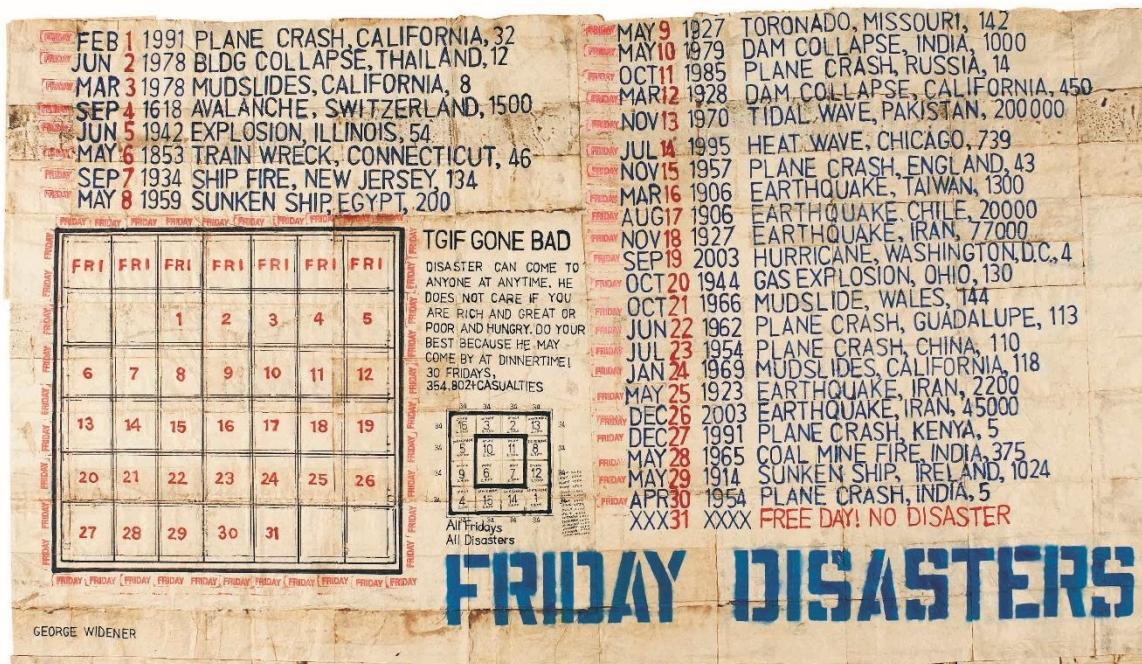 FRIDAY FEB 1 1991 PLANE CRASH, CALIFORNIA, 32
FRIDAY JUN 2 1978 BLDG COLLAPSE, THAILAND, 12
FRIDAY MAR 3 1978 MUDSLIDES, CALIFORNIA, 8
FRIDAY SEP 4 1618 AVALANCHE, SWITZERLAND, 1500
FRIDAY JUN 5 1942 EXPLOSION, ILLINOIS, 54
FRIDAY MAY 6 1853 TRAIN WRECK, CONNECTICUT, 46
FRIDAY SEP 7 1934 SHIP FIRE, NEW JERSEY, 134
FRIDAY MAY 8 1959 SUNKEN SHIP, EGYPT, 200
FRIDAY FRIDAY FRIDAY FRIDAY FRIDAY FRIDAY FRIDAY FRIDAY FRIDAY
FRI FRI FRI FRI FRI FRI FRI
1 2 3 4 5
6 7 8 9 10 11 12
13 14 15 16 17 18 19
20 21 22 23 24 25 26
27 28 29 30 31
FRIDAY FRIDAY FRIDAY FRIDAY FRIDAY FRIDAY FRIDAY FRIDAY FRIDAY
TGIF GONE BAD
DISASTER CAN COME TO
ANYONE AT ANYTIME. HE
DOES NOT CARE IF YOU
ARE RICH AND GREAT OR
POOR AND HUNGRY. DO YOUR
BEST BECAUSE HE MAY
COME BY AT DINNERTIME!
30 FRIDAYS,
354.802+CASUALTIES
34 34 34 34
34 16 3 2 13 34
5 10 11 8
34 9 6 7 12
4 15 14 1
34 34 34 34
All Fridays
All Disasters
FRIDAY MAY 9 1927 TORONADO, MISSOURI, 142
FRIDAY MAY 10 1979 DAM COLLAPSE, INDIA, 1000
FRIDAY OCT 11 1985 PLANE CRASH, RUSSIA, 14
FRIDAY MAR 12 1928 DAM COLLAPSE, CALIFORNIA, 450
FRIDAY NOV 13 1970 TIDAL WAVE, PAKISTAN, 200000
FRIDAY JUL 14 1995 HEAT WAVE, CHICAGO, 739
FRIDAY NOV 15 1957 PLANE CRASH, ENGLAND, 43
FRIDAY MAR 16 1906 EARTHQUAKE, TAIWAN, 1300
FRIDAY AUG 17 1906 EARTHQUAKE, CHILE, 20000
FRIDAY NOV 18 1927 EARTHQUAKE, IRAN, 77000
FRIDAY SEP 19 2003 HURRICANE, WASHINGTON, D.C., 4
FRIDAY OCT 20 1944 GAS EXPLOSION, OHIO, 130
FRIDAY OCT 21 1966 MUDSLIDE, WALES, 144
FRIDAY JUN 22 1962 PLANE CRASH, GUADALUPE, 113
FRIDAY JUL 23 1954 PLANE CRASH, CHINA, 110
FRIDAY JAN 24 1969 MUDSLIDES, CALIFORNIA, 118
FRIDAY MAY 25 1923 EARTHQUAKE, IRAN, 2200
FRIDAY DEC 26 2003 EARTHQUAKE, IRAN, 45000
FRIDAY DEC 27 1991 PLANE CRASH, KENYA, 5
FRIDAY MAY 28 1965 COAL MINE FIRE, INDIA, 375
FRIDAY MAY 29 1914 SUNKEN SHIP, IRELAND, 1024
FRIDAY APR 30 1954 PLANE CRASH, INDIA, 5
XXX 31 XXXX FREE DAY! NO DISASTER
FRIDAY DISASTERS
GEORGE WIDENER